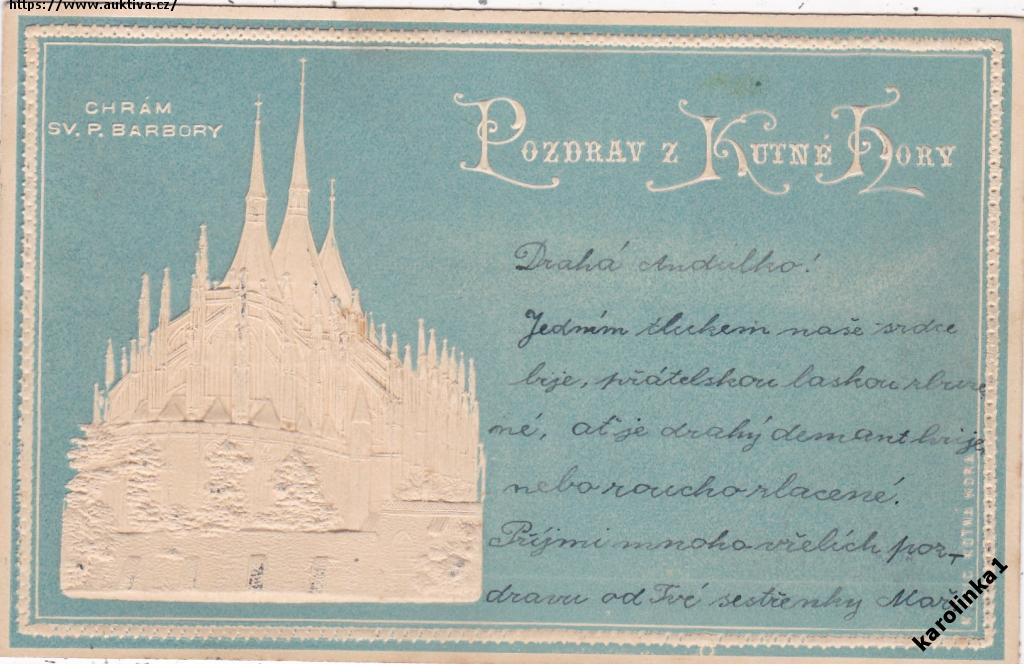 https://www.auktiva.cz/
CHRÁM
SV. P. BARBORY
POZDRAV Z KUTNÉ HORY
Drahá Andulko!
Jedním tlukem naše srdce
bije, přátelskou laskou sbure
né, ať je drahý demant kryje,
nebo roucho zlacené.
Přijmi mnoho vřelích poz-
dravu od Tvé sestřenky Mař
KUTNÁ HORA
karolinka1